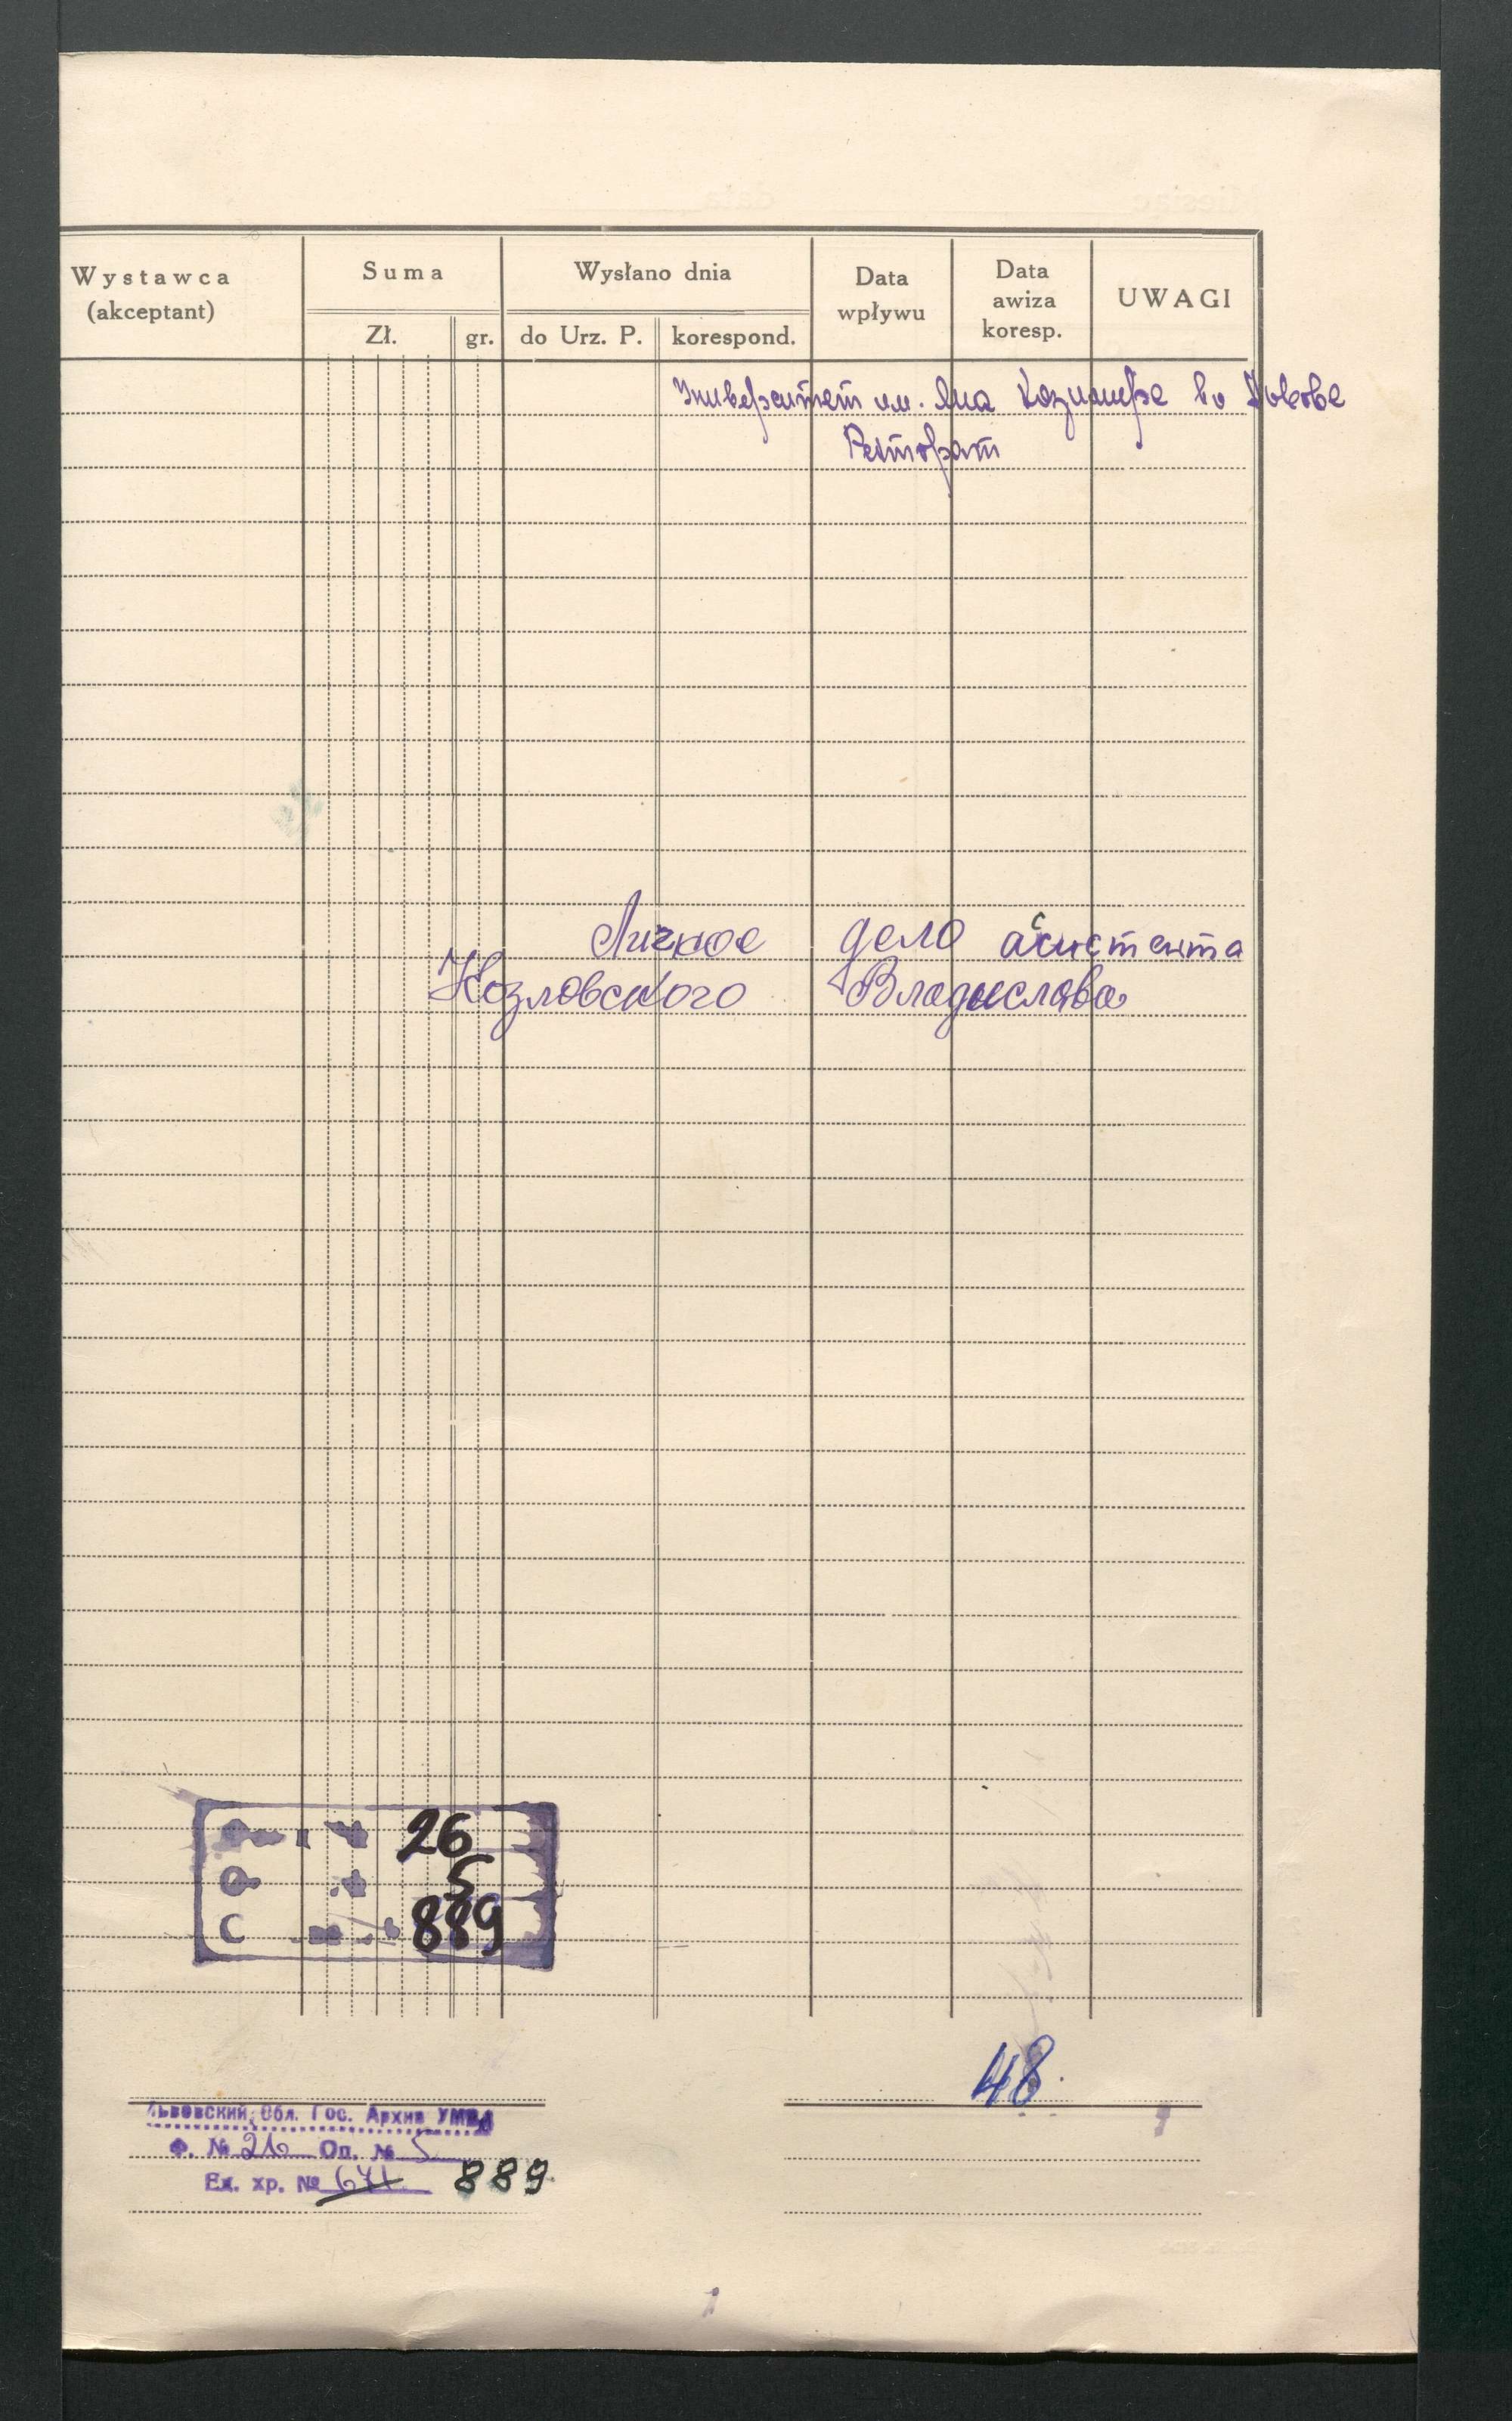 Wystawca (akceptant)
Suma
Zł.
gr.
Wysłano dnia
do Urz. P.
korespond.
Data wpływu
Data awiza koresp.
UWAGI
Университет им. Яна Казимира во Львове
Ректорат
Личное дело асистента
Козловского Владыслава
26
5
889
48
Львовский Обл. Гос. Архив УМВД
Ф. № 26 Оп. № 5
Ед. хр. № 671 889
1